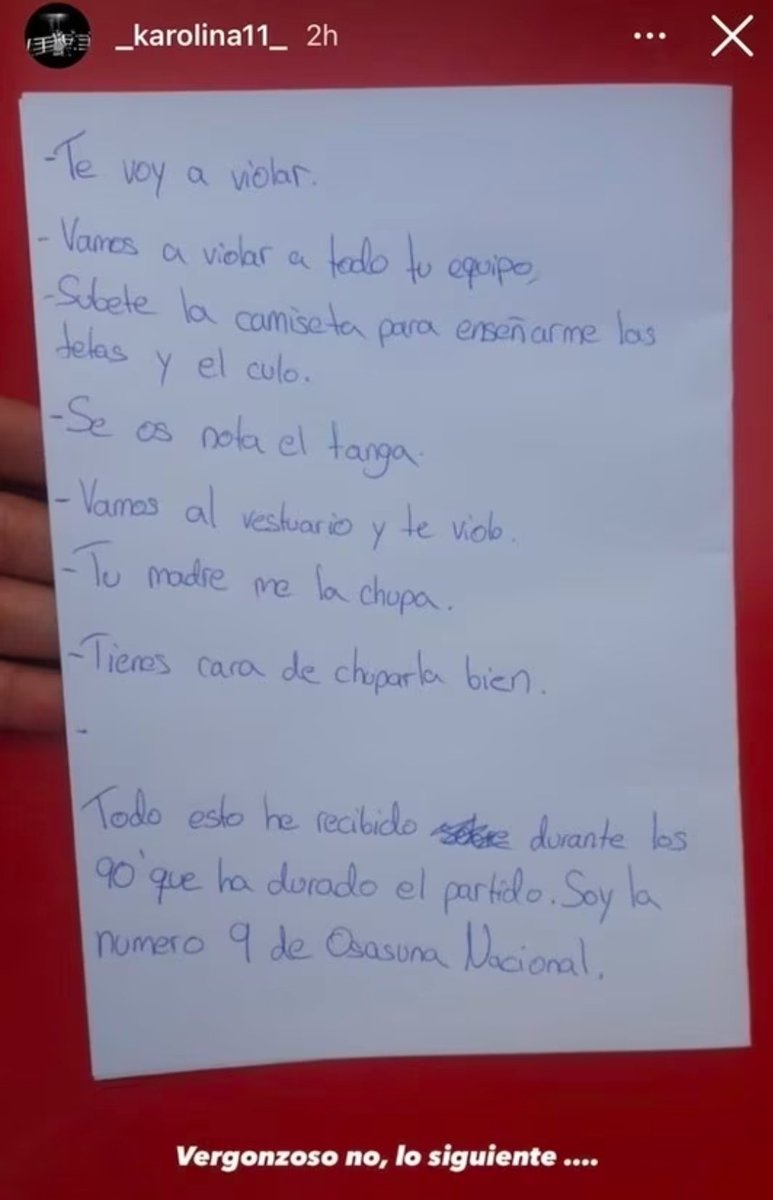 _karolina11_ 2h
-Te voy a violar.
- Vamos a violar a todo tu equipo.
-Subete la camiseta para enseñarme las
tetas y el culo.
-Se os nota el tanga.
-Vamos al vestuario y te violo.
-Tu madre me la chupa.
-Tienes cara de chuparla bien.
-
Todo esto he recibido durante los
90' que ha durado el partido. Soy la
numero 9 de Osasuna Nacional.
Vergonzoso no, lo siguiente ....